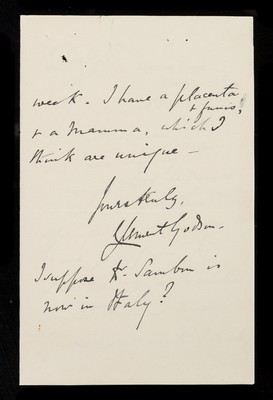 week. I have a placenta
& funis,
& a mamma, which I
think are unique —
Yours truly,
Clement Godson.
I suppose Dr. Sambon is
now in Italy?